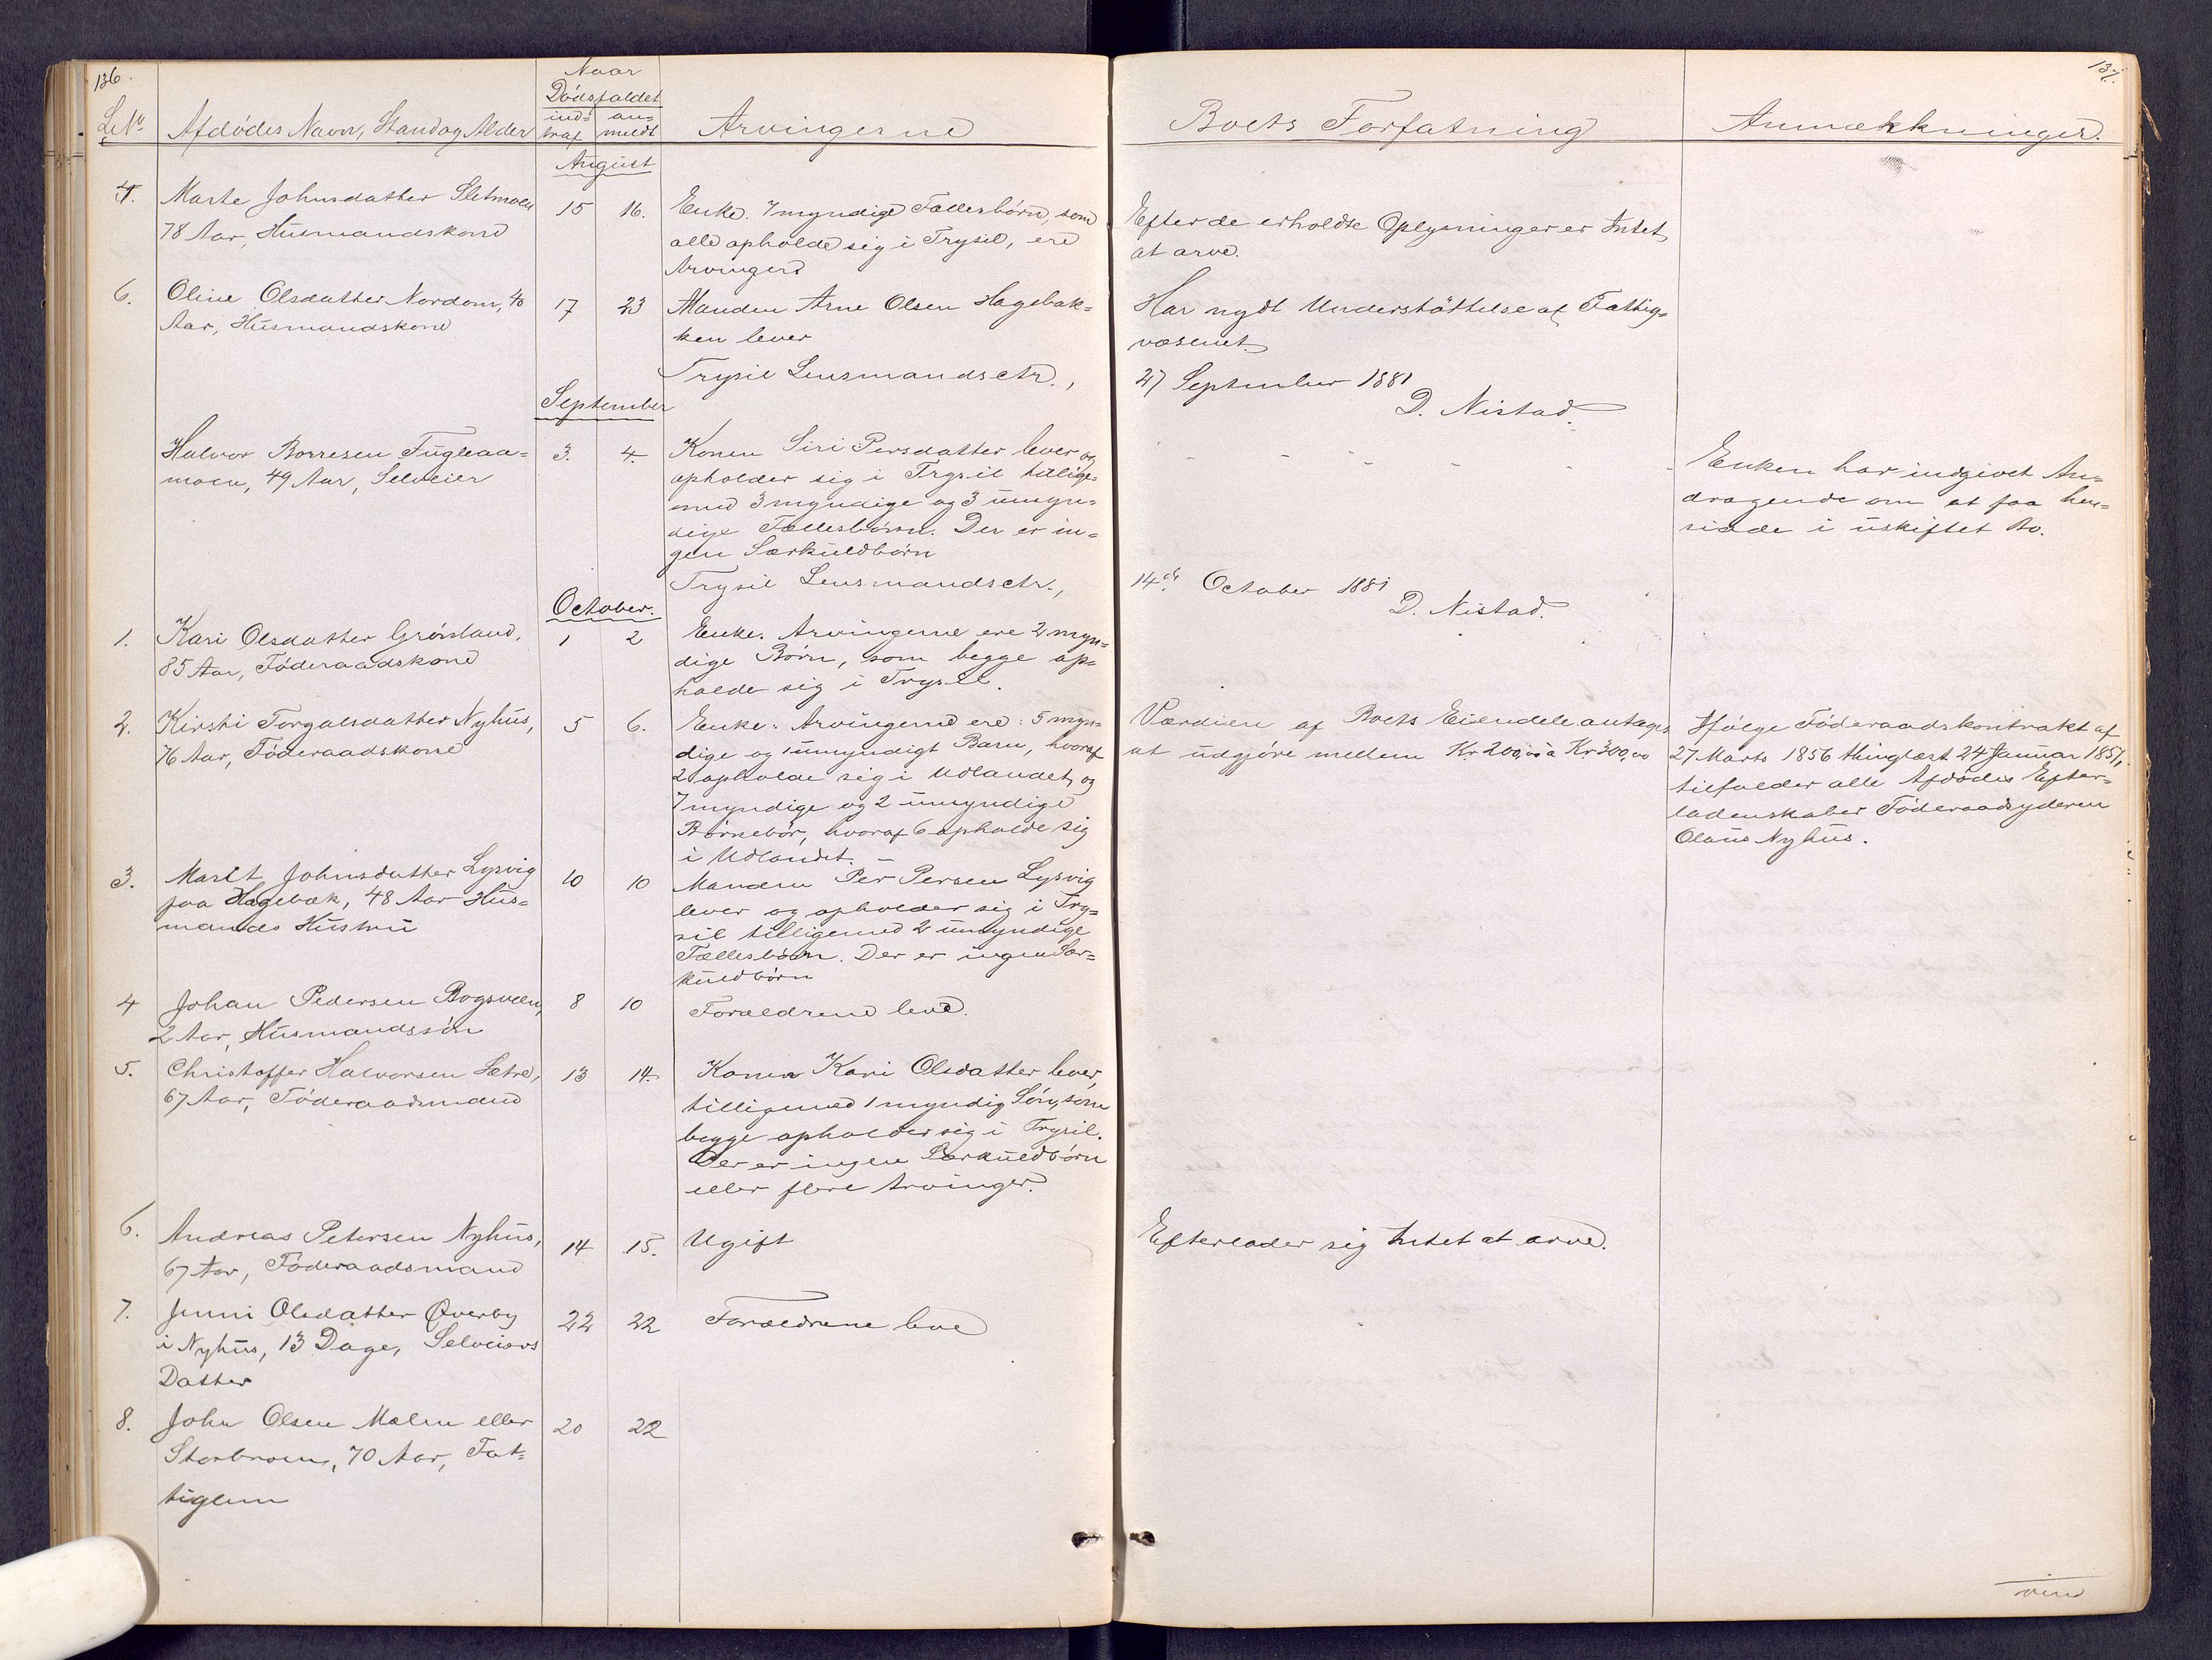 136.
Naar
Dödsfaldet
LNr. Afdödes Navn, Stand og Alder ind- traf an- meldt Arvingerne
August
4. Marte Johnsdatter Sletmoen 15 16. Enke. 7 myndige Fællesbörn, som
78 Aar, Husmandskone alle opholde sig i Trysil, ere
Arvinger
6. Oline Olsdatter Nordom, 40 17 23 Manden Arne Olsen Hagebak-
Aar, Husmandskone ken lever
Trysil Lensmandsctr.,
September
Halvor Borresen Fugleaa- 3. 4. Konen Siri Persdatter lever og
moen, 49 Aar, Selveier opholder sig i Trysil tillige-
med 3 myndige og 3 umyn-
dige Fællesbörn. Der er in-
gen Særkuldbörn
Trysil Lensmandsctr.,
October.
1. Kari Olsdatter Grönland, 1 2 Enke. Arvingerne ere 2 myn-
85 Aar, Föderaadskone dige Börn, som begge op-
holde sig i Trysil.
2. Kirsti Torgalsdatter Nyhus, 5 6. Enke. Arvingerne ere: 5 myn-
76 Aar, Föderaadskone dige og 1 umyndigt Barn, hvoraf
2 opholde sig i Udlandet, og
7 myndige og 2 umyndige
Börnebör, hvoraf 6 opholde sig
i Udlandet. —
3. Marit Johnsdatter Lysvig 10 10 Manden Per Persen Lysvig
paa Hagebak, 48 Aar Hus- lever og opholder sig i Try-
mands Hustru sil tilligemed 2 umyndige
Fællesbörn. Der er ingen Sær-
kuldbörn
4 Johan Pedersen Bogsveen, 8 10 Forældrene leve.
2 Aar, Husmandssön
5. Christoffer Halvorsen Sætre, 13 14. Konen Kari Olsdatter lever,
67 Aar, Föderaadsmand tilligemed 1 myndig Sön, som
begge opholder sig i Trysil.
Der er ingen Særkuldbörn
eller flere Arvinger.
6. Andreas Petersen Nyhus, 14 15. Ugift
67 Aar, Föderaadsmand
7. Jenni Olsdatter Øverby 22 22 Forældrene leve
i Nyhus, 13 Dage, Selveiers
Datter
8. John Olsen Malm eller 20 22
Storbroen, 70 Aar, Fat-
tiglem
137.
Boets Forfatning Anmærkninger.
Efter de erholdte Oplysninger er Intet
at arve.
Har nydt Understöttelse af Fattig-
væsenet.
27 September 1881
D. Nistad.
- - - - - - Enken har indgivet An-
dragende om at faa hen-
sidde i uskiftet Bo.
14de October 1881
D. Nistad.
Værdien af Boets Eiendele antages Ifölge Föderaadskontrakt af
at udgjöre mellem Kr. 200,00 a Kr. 300,00 27 Marts 1856 thinglæst 24 Januar 1857,
tilfalder alle Afdödes Efter-
ladenskaber Föderaadsyderen
Olaus Nyhus.
Efterlader sig Intet at arve.